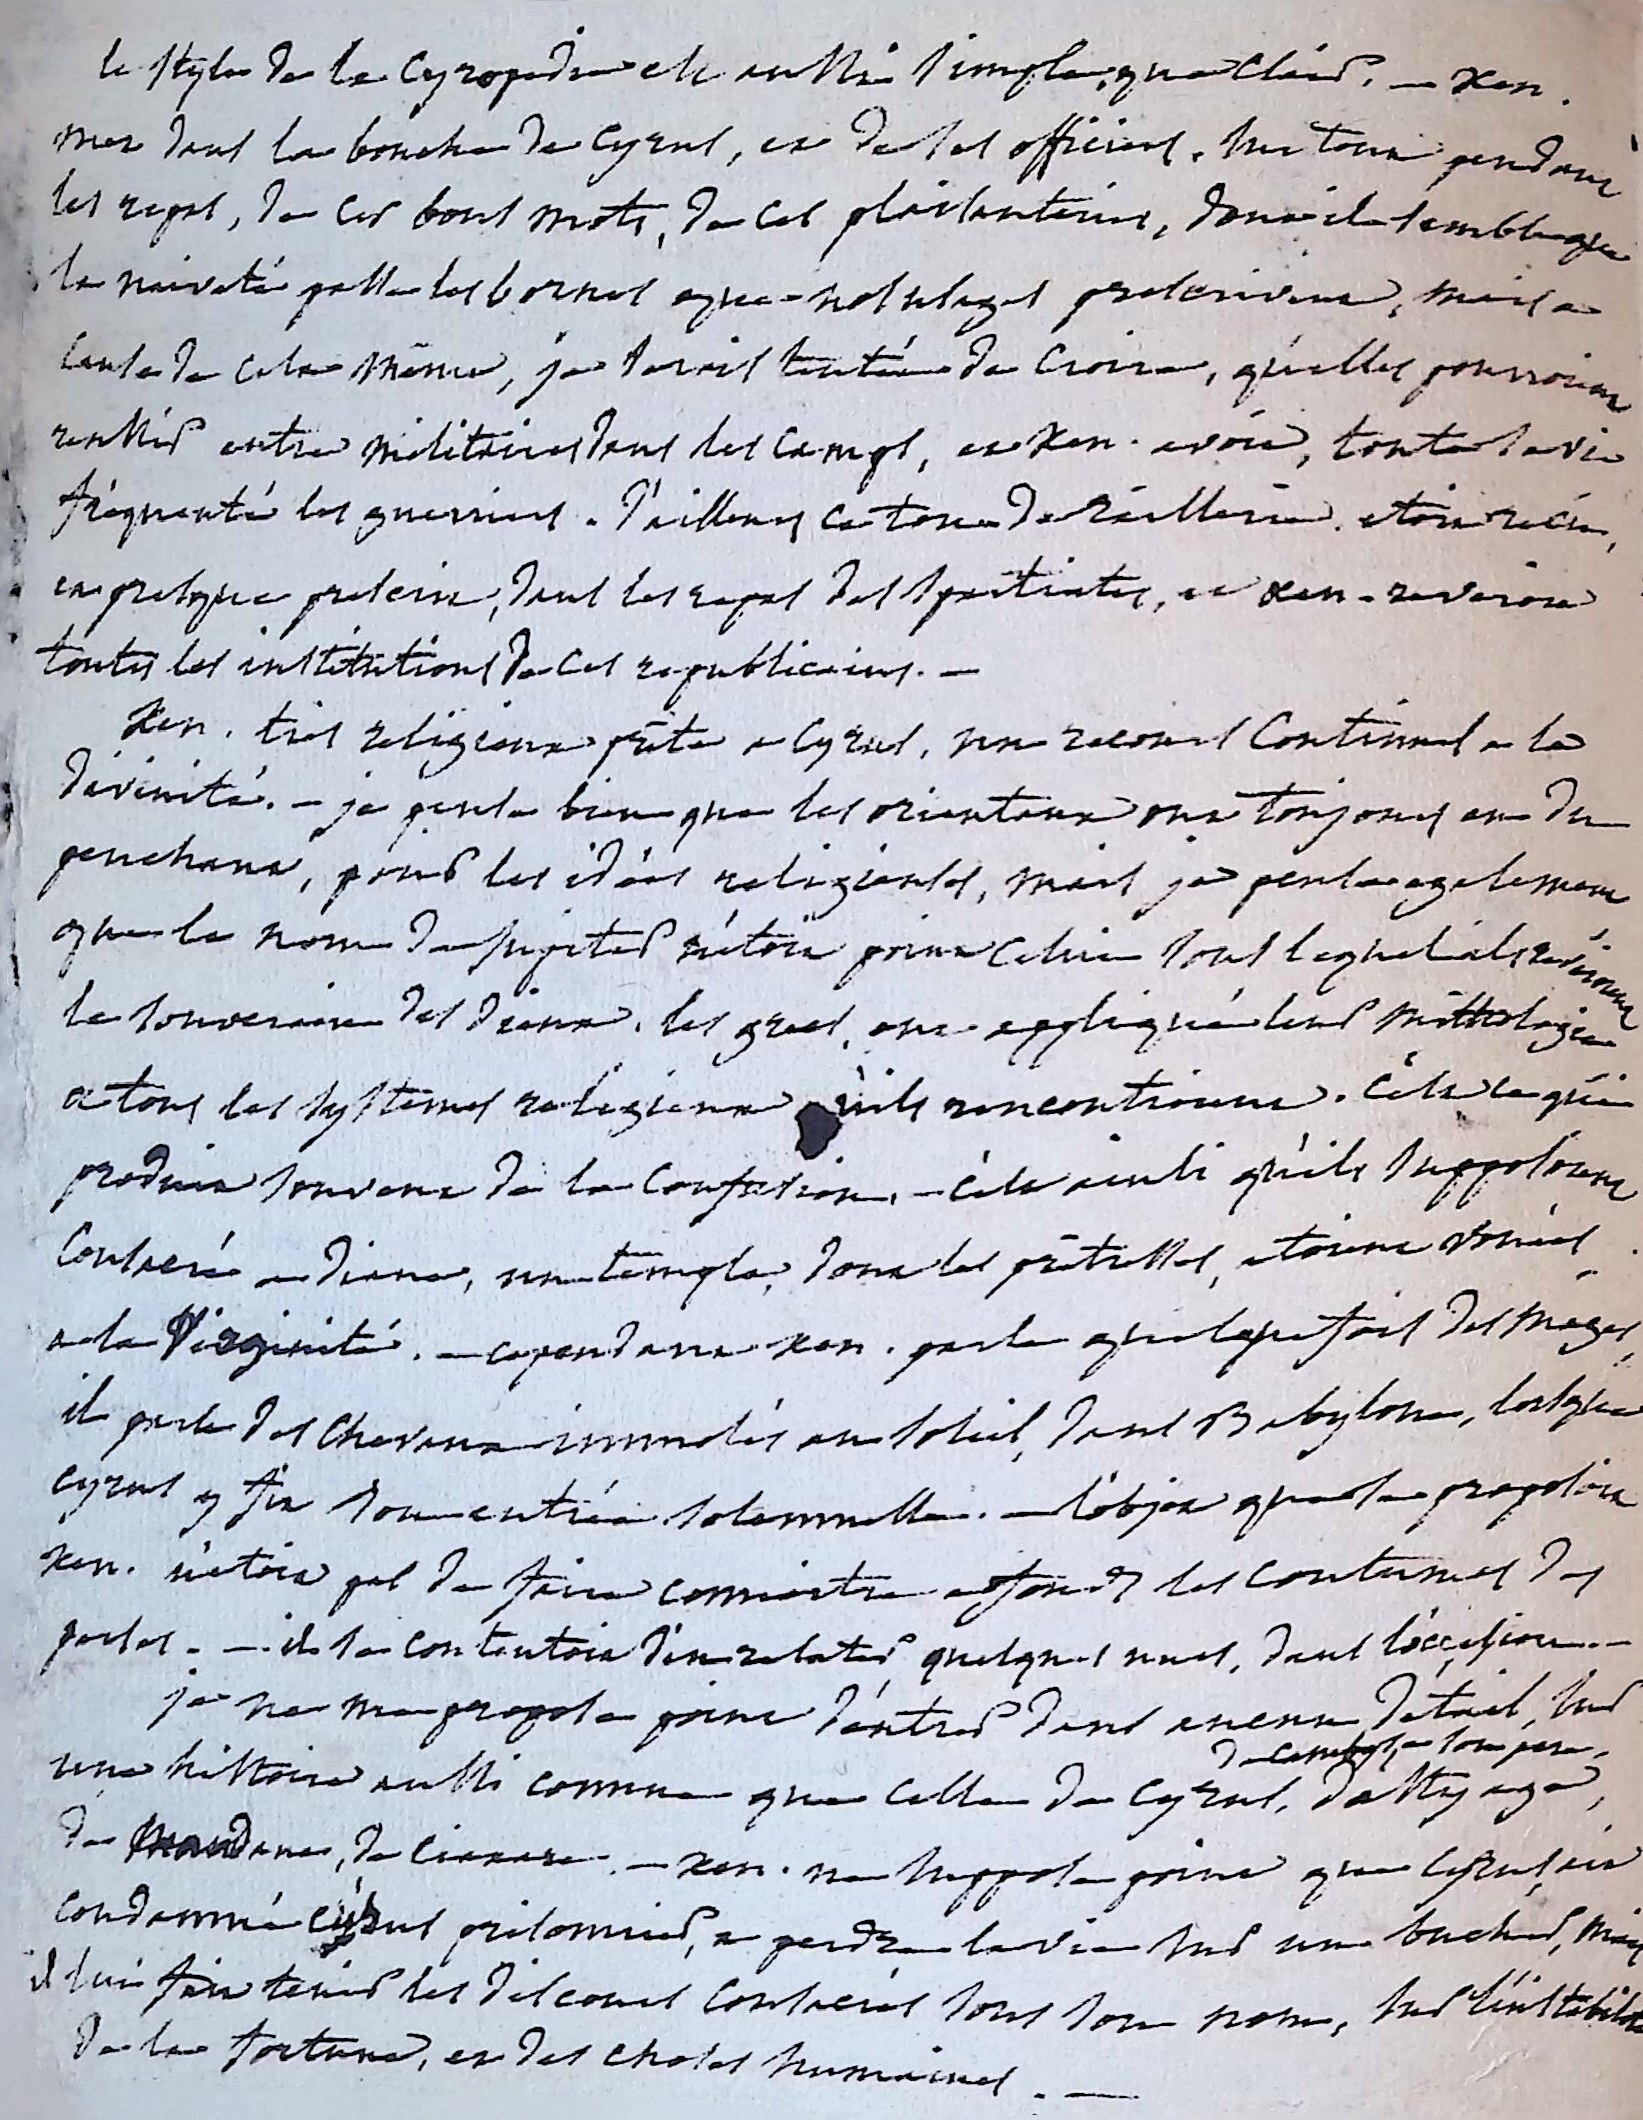 le style de la Cyropedie est aussi simple, que clair. — Xen.
met dans la bouche de Cyrus, et de ses officiers. surtout pendant
les repas, de ces bons mots, de ces plaisanteries, dont il semble que
la naiveté passe les bornes que nos usages prescrivent, mais a
cause de cela même, je serois tentée de croire, qu'elles pourroient
reussir entre militaires dans les camps, et Xen. avoit, toute sa vie
fréquenté les guerriers. d'ailleurs ce ton de raillerie. etoit recu,
et presque prescrit, dans les repas des spartiates, et Xen. reveroit
toutes les institutions de ces republicains. —
Xen. très religieux prête a Cyrus, un recours continuel a la
divinité. — je pense bien que les orientaux ont toujours eu du
penchant, pour les idées religieuses, mais je pense egalement
que le nom de Jupiter n'étoit point celui sous lequel ils reveroient
le souverain des dieux. les grecs, ont appliqué leur mithologie
a tous les systemes religieux qu'ils rencontroient. C'est ce qui
produit souvent de la confusion. — C'est ainsi qu'ils supposoient
consacré a diane, un temple, dont les prêtresses, etoient vouées
a la Virginité. — cependant Xen. parle quelquefois des mages,
il parle des chevaux immolés au soleil, dans Babylone, lorsque
Cyrus y fit son entrée solemnelle. — l'objet que se proposoit
Xen. n'etoit pas de faire connoitre a fond les coutumes des
perses. — il se contentoit d'en relater quelques unes, dans l'occasion. —
je ne me propose point d'entrer dans aucun détail, sur
de cambyse son pere,
une histoire aussi connue que celle de Cyrus, d'astyage,
de mandane, de Ciaxare. — Xen. ne suppose point que Cyrus, ait
condamné Crésus prisonnier, a perdre la vie sur un bucher, mais
il lui fait tenir les discours consacrés sous son nom, sur l'instabilité
de la fortune, et des choses humaines. —